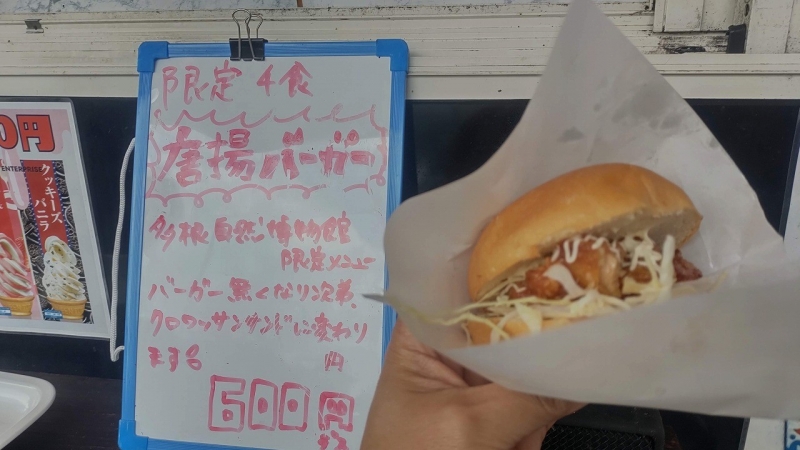 限定 4食
唐揚バーガー
多根自然博物館
限定メニュー
バーガー無くなり次第、
クロワッサンサンドに変わり
ます
円
600円
0円
ENTERPRISE
クッキーズ
バニラ